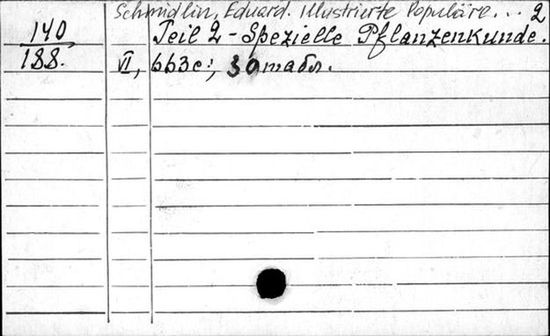 Schmidlin, Eduard. Illustrierte Populäre... 2
140
188.
Teil 2 - Spezielle Pflanzenkunde.
VI, 663c:, 30 табл.